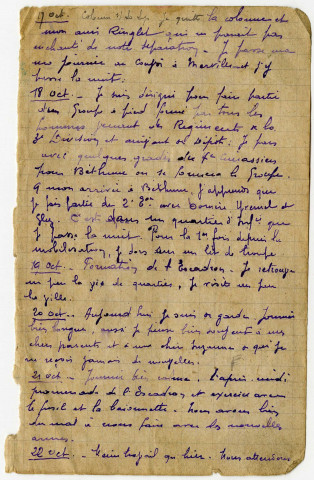 7 oct. je quitte la colonne et
mon ami Ringlet qui ne paraît pas
enchanté de notre séparation. Je passe une
journée au Camp à Merville et j'y
passe la nuit.
18 oct. - Je suis désigné pour faire partie
d'un Groupe à pied formé par tous les
Régiments de la
Division et au Dépôt. Je pars
avec quelques grades des Cuirassiers
pour Béthune où se formera le Groupe.
A mon arrivée à Béthune, j'apprends que
je fais partie du 2e Eon avec
C'est dans un quartier d'Infrie que
je passe la nuit. Pour la 1re fois depuis la
mobilisation, je dors sur un lit de troupe
19 oct. - Formation de l'Escadron. Je retrouve
un peu la vie de quartier, je visite un peu
la ville.
20 oct. - Aujourd'hui je suis de garde. Journée
très longue, aussi je peux bien songer à mes
chers parents et à ma chère Suzanne de qui je
ne reçois jamais de nouvelles.
21 oct. - Journée bien remplie. L'après-midi
promenade de l'Escadron et exercice avec
le fusil et la baïonnette. Nous avons bien
du mal à nous faire avec les nouvelles
armes.
22 oct. - Même travail qu'hier. Nous attendons